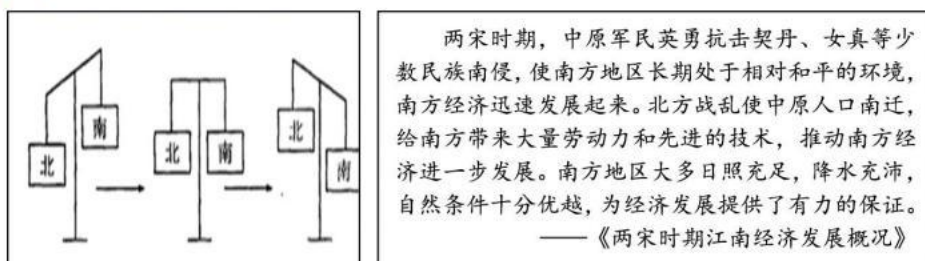 北
南
北
南
北
南
两宋时期，中原军民英勇抗击契丹、女真等少
数民族南侵，使南方地区长期处于相对和平的环境，
南方经济迅速发展起来。北方战乱使中原人口南迁，
给南方带来大量劳动力和先进的技术，推动南方经
济进一步发展。南方地区大多日照充足，降水充沛，
自然条件十分优越，为经济发展提供了有力的保证。
——《两宋时期江南经济发展概况》